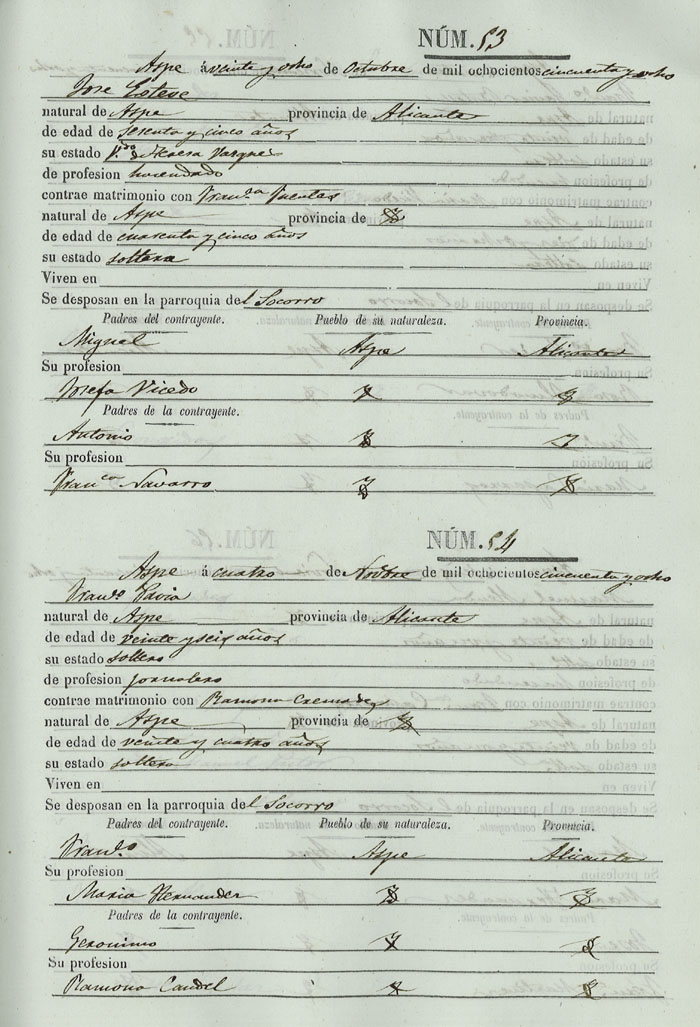 NÚM. 53
Aspe á veinte y ocho de Octubre de mil ochocientos cincuenta y ocho
Jose Esteve
natural de Aspe provincia de Alicante
de edad de sesenta y cinco años
su estado V.do de
de profesion hacendado
contrae matrimonio con Fran.ca Puentes
natural de Aspe provincia de
de edad de cuarenta y cinco años
su estado soltera
Viven en
Se desposan en la parroquia del Socorro
Padres del contrayente. Pueblo de su naturaleza. Provincia.
Miguel Aspe Alicante
Su profesion
Josefa Vicedo
Padres de la contrayente.
Antonio
Su profesion
Fran.ca Navarro
NÚM. 54
Aspe á cuatro de Novbre de mil ochocientos cincuenta y ocho
Fran.co Pavia
natural de Aspe provincia de Alicante
de edad de veinte y seis años
su estado soltero
de profesion jornalero
contrae matrimonio con Ramona Cremades
natural de Aspe provincia de
de edad de veinte y cuatro años
su estado soltera
Viven en
Se desposan en la parroquia del Socorro
Padres del contrayente. Pueblo de su naturaleza. Provincia.
Fran.co Aspe Alicante
Su profesion
Maria Hernandez
Padres de la contrayente.
Geronimo
Su profesion
Ramona Candel